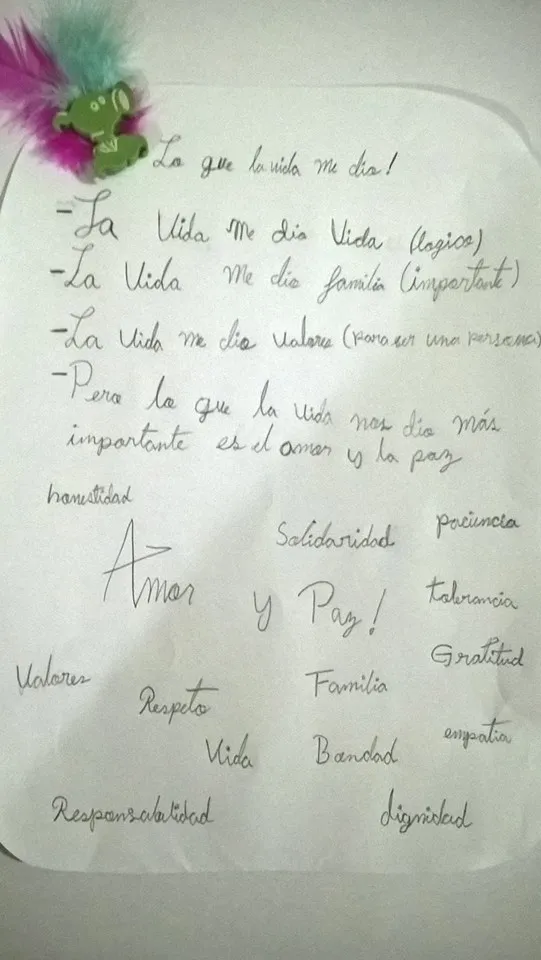 Lo que la vida me dio!
- La Vida me dio Vida (logico)
- La Vida me dio familia (importante)
- La Vida me dio valores (para ser una persona)
- Pero lo que la vida nos dio más
importante es el amor y la paz
honestidad
Solidaridad paciencia
Amor y Paz! tolerancia
Gratitud
Valores Respeto Familia
Vida Bondad empatia
Responsabilidad dignidad